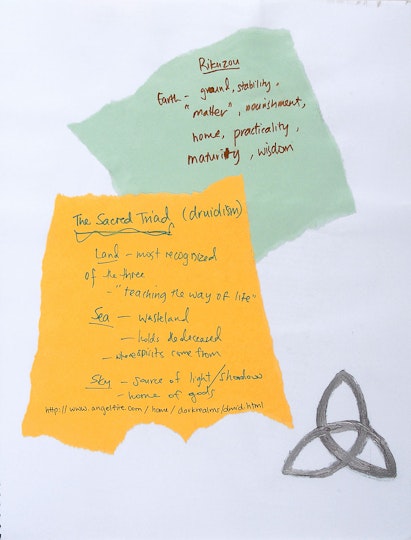 Rikuzou
Earth - ground, stability,
"matter", nourishment,
home, practicality,
maturity, wisdom
The Sacred Triad (druidism)
Land - most recognized
of the three
- "teaching the way of life"
Sea - wasteland
- holds the deceased
- where spirits come from
Sky - source of light/shadow
- home of gods
http://www.angelfire.com/home/darkrealms/druid.html